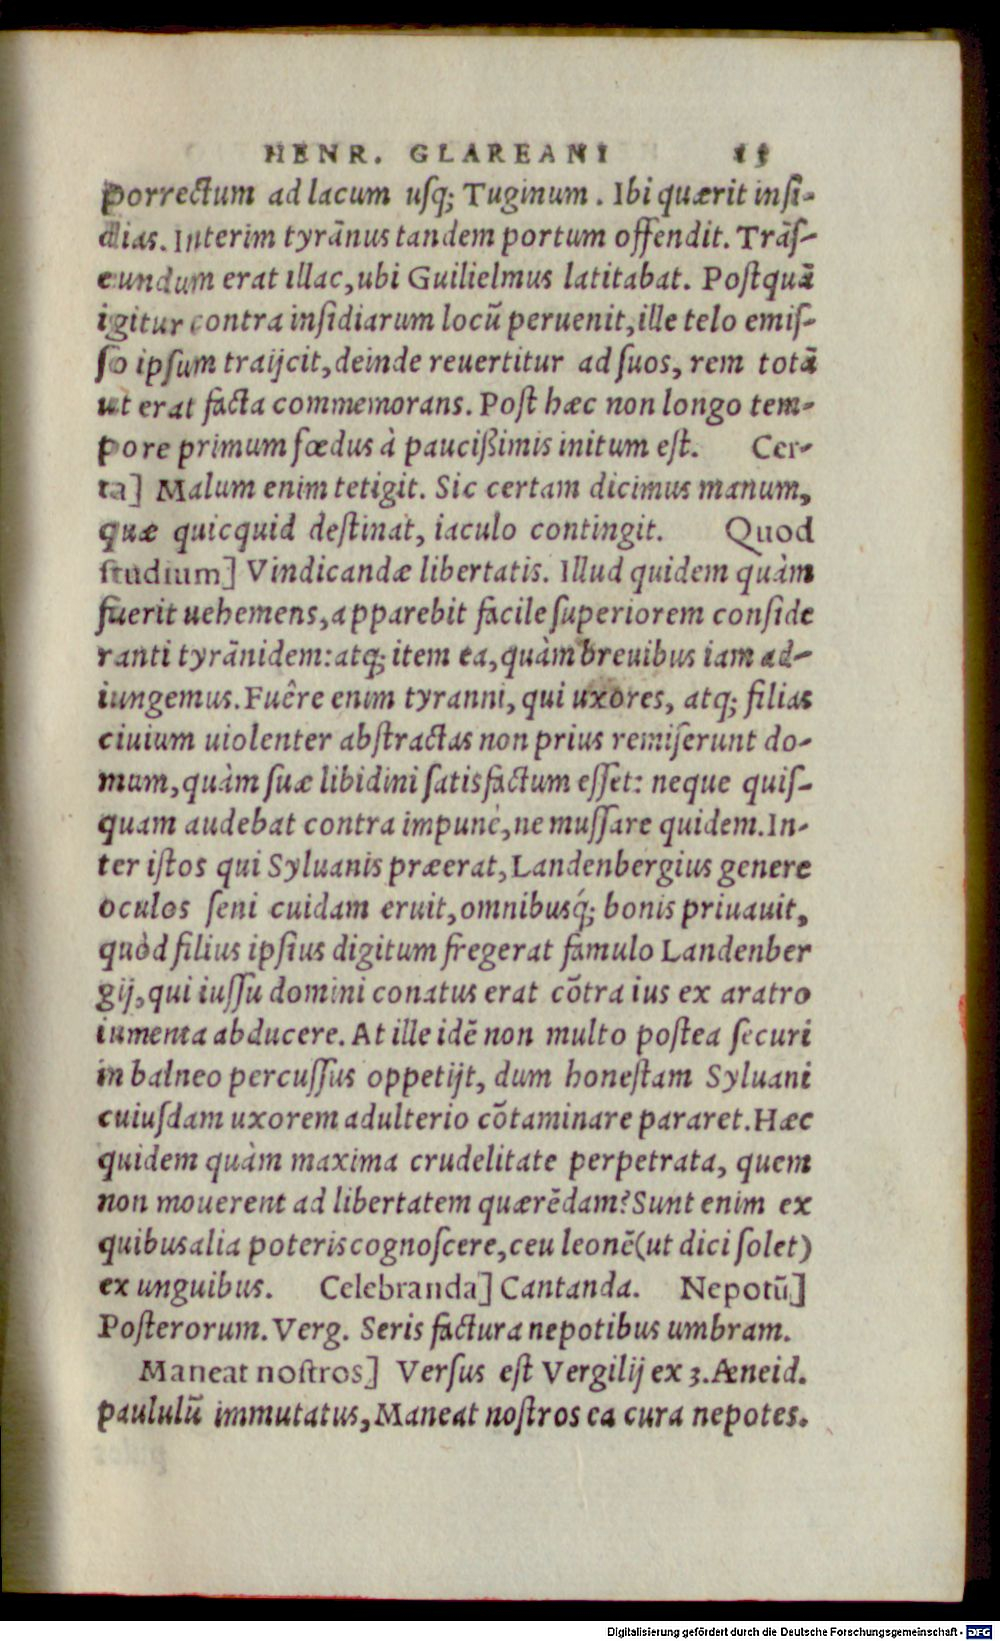 HENR. GLAREANI 15
porrectum ad lacum usq; Tuginum. Ibi quærit insi-
dias. Interim tyrānus tandem portum offendit. Trāſ-
eundum erat illac, ubi Guilielmus latitabat. Poſtquā
igitur contra inſidiarum locū peruenit, ille telo emiſ-
ſo ipſum traijcit, deinde reuertitur ad ſuos, rem totā
ut erat facta commemorans. Poſt hæc non longo tem-
pore primum fœdus à pauciſſimis initum eſt. Cer-
ta] Malum enim tetigit. Sic certam dicimus manum,
quæ quicquid deſtinat, iaculo contingit. Quod
ſtudium] Vindicandæ libertatis. Illud quidem quàm
fuerit uehemens, apparebit facile ſuperiorem conſide
ranti tyrānidem: atq; item ea, quàm breuibus iam ad-
iungemus. Fuêre enim tyranni, qui uxores, atq; filias
ciuium uiolenter abſtractas non prius remiſerunt do-
mum, quàm ſuæ libidini ſatisfactum eſſet: neque quiſ-
quam audebat contra impunè, ne muſſare quidem. In-
ter iſtos qui Syluanis præerat, Landenbergius genere
oculos ſeni cuidam eruit, omnibusq́; bonis priuauit,
quòd filius ipſius digitum fregerat famulo Landenber
gij, qui iuſſu domini conatus erat cōtra ius ex aratro
iumenta abducere. At ille idē non multo poſtea ſecuri
in balneo percuſſus oppetijt, dum honeſtam Syluani
cuiuſdam uxorem adulterio cōtaminare pararet. Hæc
quidem quàm maxima crudelitate perpetrata, quem
non mouerent ad libertatem quærēdam? Sunt enim ex
quibus alia poteris cognoſcere, ceu leonē (ut dici ſolet)
ex unguibus. Celebranda] Cantanda. Nepotū]
Poſterorum. Verg. Seris factura nepotibus umbram.
Maneat noſtros] Verſus eſt Vergilij ex 3. Æneid.
paululū immutatus, Maneat noſtros ea cura nepotes.
Digitalisierung gefördert durch die Deutsche Forschungsgemeinschaft - DFG